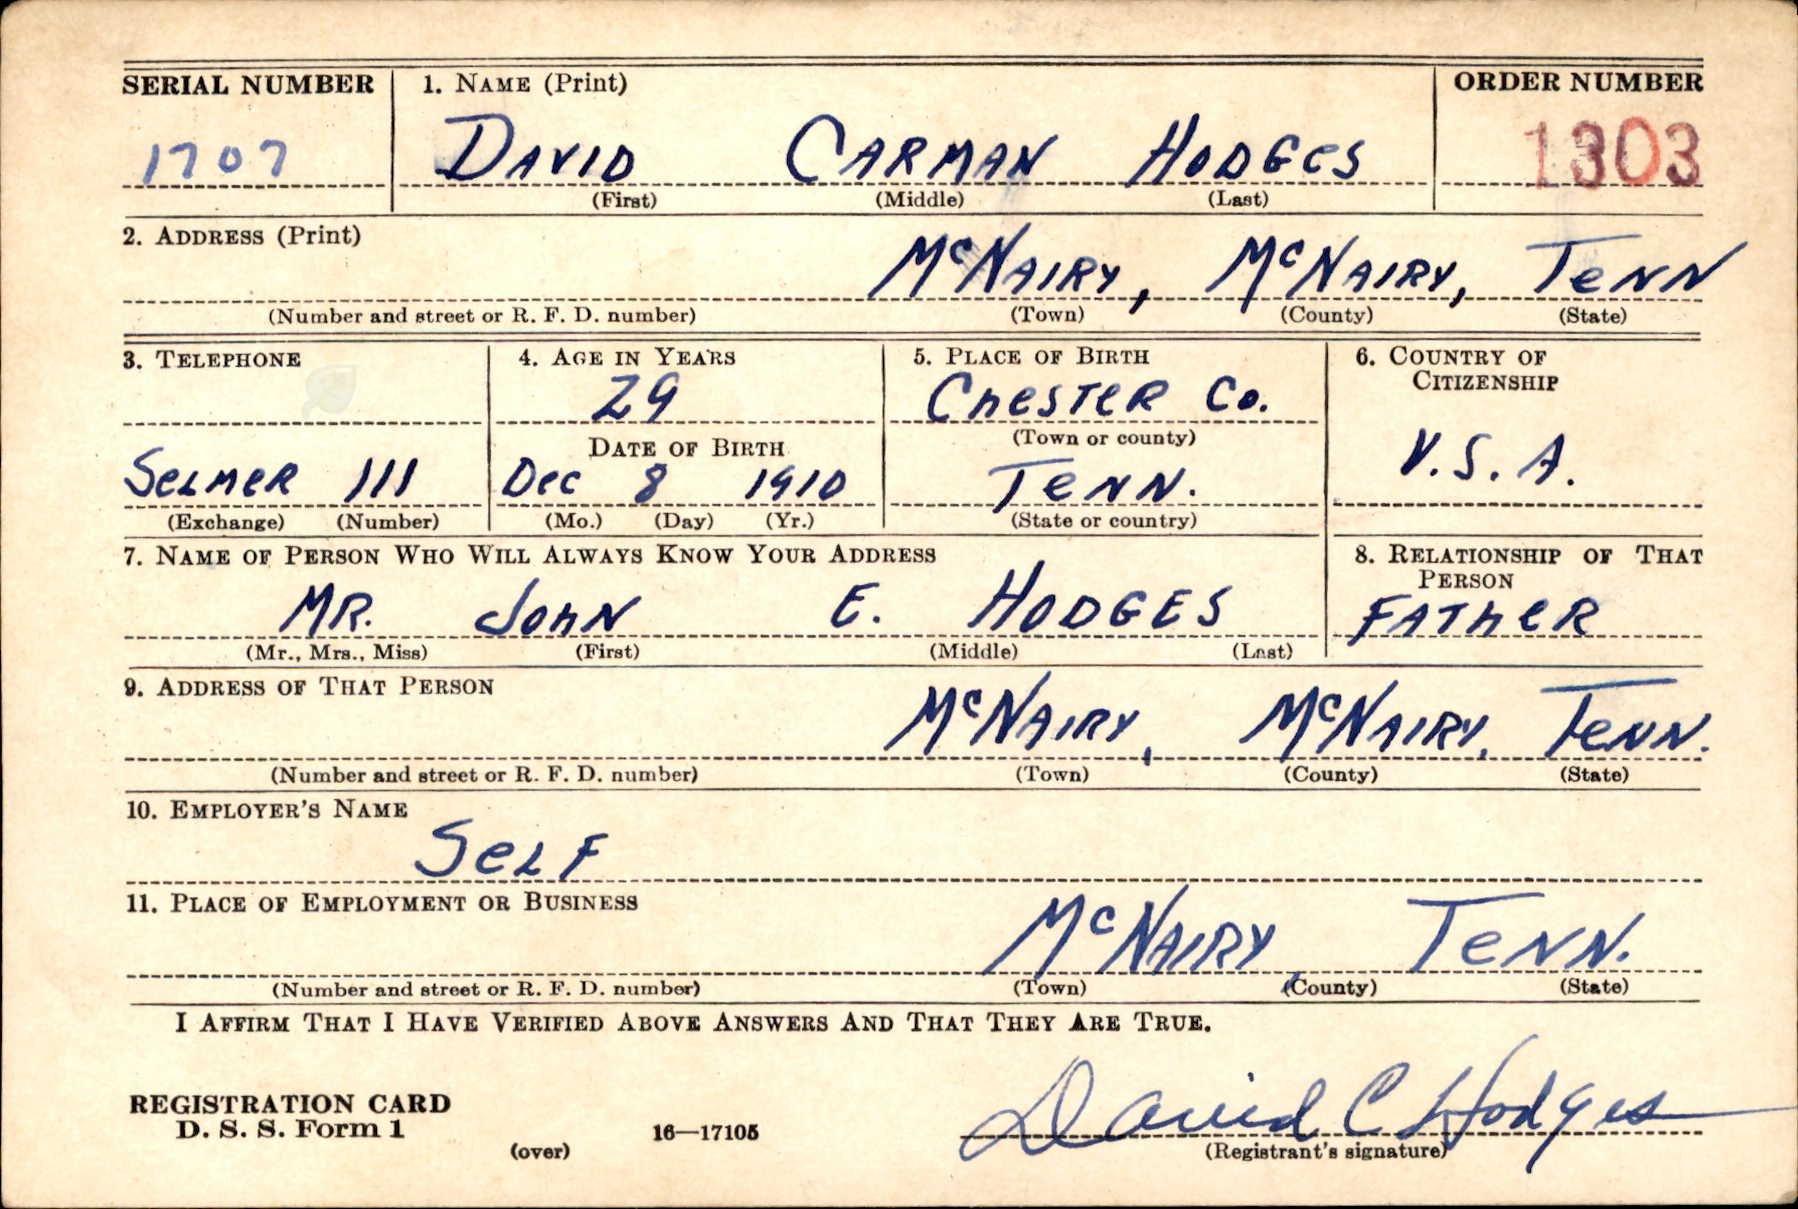 SERIAL NUMBER 1. NAME (Print) ORDER NUMBER
1707 DAVID CARMAN HODGES 1303
(First) (Middle) (Last)
2. ADDRESS (Print)
McNAIRY, McNAIRY, TeNN
(Number and street or R. F. D. number) (Town) (County) (State)
3. TELEPHONE 4. AGE IN YEARS 5. PLACE OF BIRTH 6. COUNTRY OF CITIZENSHIP
29 CHESTER Co.
DATE OF BIRTH (Town or county)
SELMER 111 Dec 8 1910 TENN. U.S.A.
(Exchange) (Number) (Mo.) (Day) (Yr.) (State or country)
7. NAME OF PERSON WHO WILL ALWAYS KNOW YOUR ADDRESS 8. RELATIONSHIP OF THAT PERSON
MR. JOHN E. HODGES FATHER
(Mr., Mrs., Miss) (First) (Middle) (Last)
9. ADDRESS OF THAT PERSON
McNAIRY, McNAIRY, TeNN.
(Number and street or R. F. D. number) (Town) (County) (State)
10. EMPLOYER'S NAME
SELF
11. PLACE OF EMPLOYMENT OR BUSINESS
McNAIRY, TENN.
(Number and street or R. F. D. number) (Town) (County) (State)
I AFFIRM THAT I HAVE VERIFIED ABOVE ANSWERS AND THAT THEY ARE TRUE.
David C Hodges
REGISTRATION CARD
D. S. S. Form 1 (over) 16—17105 (Registrant's signature)